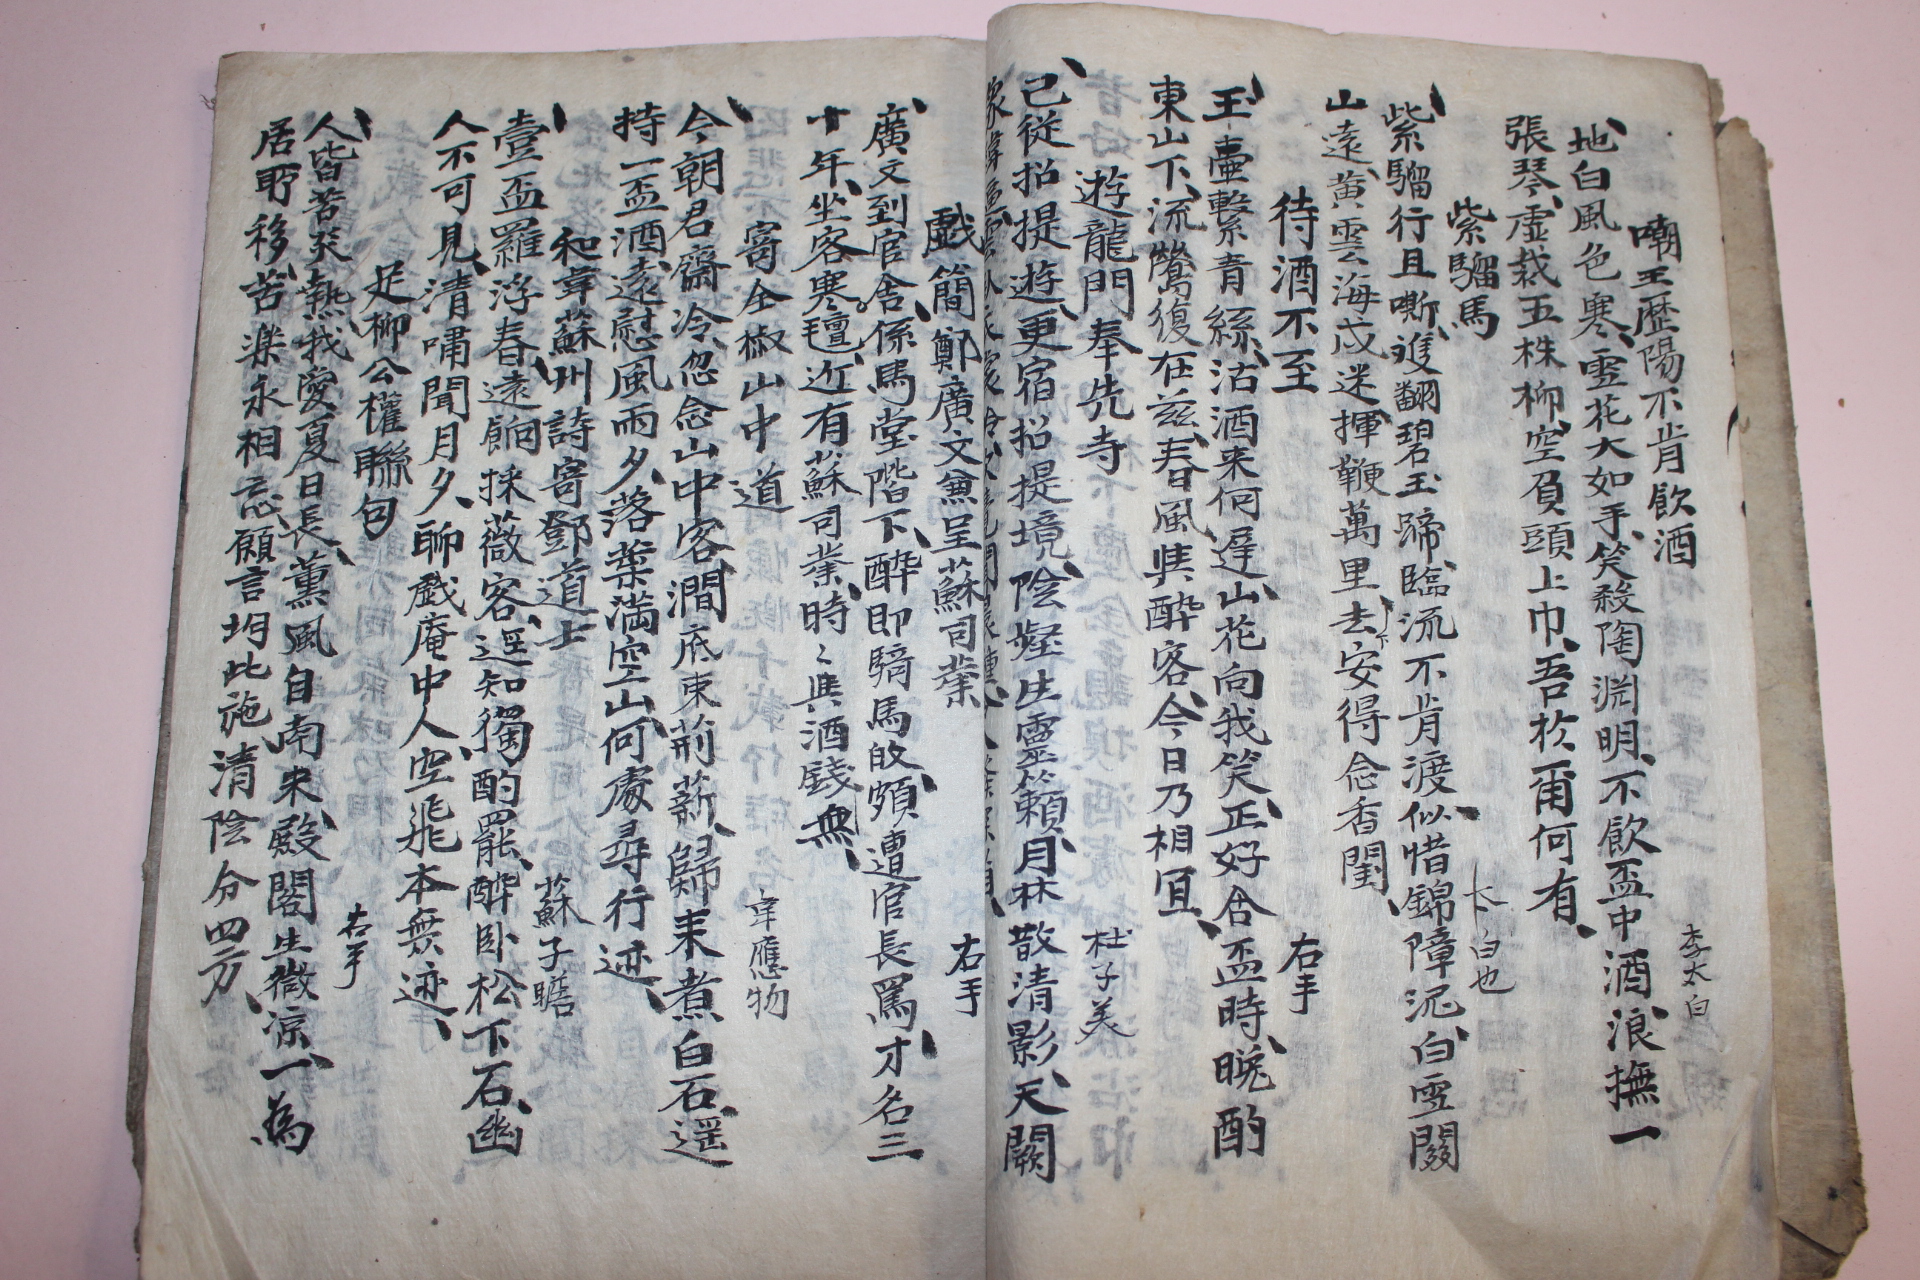 嘲王歷陽不肯飲酒 李太白
地白風色寒雪花大如手笑殺陶淵明不飲盃中酒浪撫一
張琴虛栽五株柳空負頭上巾吾於爾何有
紫騮馬 太白也
紫騮行且嘶雙翻碧玉蹄臨流不肯渡似惜錦障泥白雪關
山遠黃雲海戍迷揮鞭萬里去安得念香閨
待酒不至 右手
玉壺繫青絲沽酒来何遲山花向我笑正好含盃時晚酌
東山下流鶯復在茲春風與醉客今日乃相宜
遊龍門奉先寺 杜子美
已從招提遊更宿招提境陰壑生靈籟月林散清影天闕
戱簡鄭廣文兼呈蘇司業 右手
廣文到官舍係馬堂階下醉即騎馬敀頗遭官長罵才名三
十年坐客寒氊近有蘇司業時〻與酒錢無
寄全椒山中道 韋應物
今朝君齋冷忽念山中客澗底束荊薪歸来煮白石遥
持一盃酒遠慰風雨夕落葉滿空山何處尋行迹
和韋蘇州詩寄鄧道士 蘇子瞻
壹盃羅浮春遠餉採薇客遥知獨酌罷醉卧松下石幽
人不可見清嘯聞月夕聊戱庵中人空飛本無迹
足柳公權聯句 右手
人皆苦炎熱我愛夏日長薰風自南来殿閣生微凉一為
居所移苦楽永相忘願言均此施清陰分四方